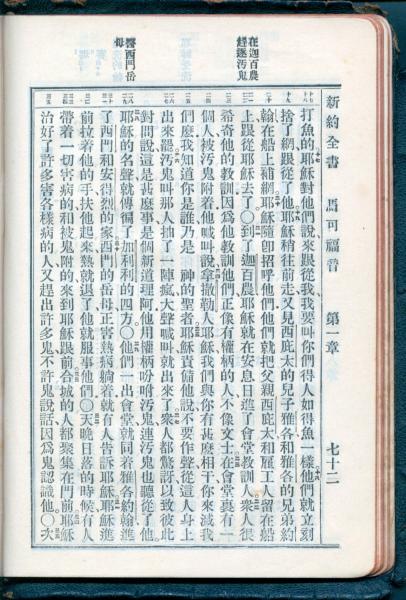 新約全書 馬可福音 第一章 七十二
在迦百農
趕逐汚鬼
醫西門岳
母
打魚的耶穌對他們說來跟從我我要叫你們得人如得魚一樣他們就立刻
捨了網跟從了他耶穌稍往前走又見西庇太的兒子雅各和雅各的兄弟約
翰在船上補網耶穌隨卽招呼他們他們就把父親西庇太和雇工人留在船
上跟從耶穌去了〇到了迦百農耶穌就在安息日進了會堂教訓人衆人很
希奇他的教訓因爲他教訓他們正像有權柄的人不像文士在會堂裏有一
個人被汚鬼附着他喊叫說拿撒勒人耶穌我們與你有甚麼相干你來滅我
們麼我知道你是誰乃是 神的聖者耶穌責備他說不要作聲從這人身上
出來罷汚鬼叫那人抽了一陣瘋大聲喊叫就出來了衆人都驚訝以致彼此
對問說這是甚麼事是個新道理阿他用權柄吩咐汚鬼連汚鬼也聽從了他
耶穌的名聲就傳徧了加利利的四方〇他們一出會堂就同着雅各約翰進
了西門和安得烈的家西門的岳母正害熱病躺着就有人告訴耶穌耶穌進
前拉着他的手扶他起來熱就退了他就服事他們〇天晚日落的時候有人
帶着一切害病的和被鬼附的來到耶穌跟前合城的人都衆集在門前耶穌
治好了許多害各樣病的人又趕出許多鬼不許鬼說話因爲鬼認識他〇次